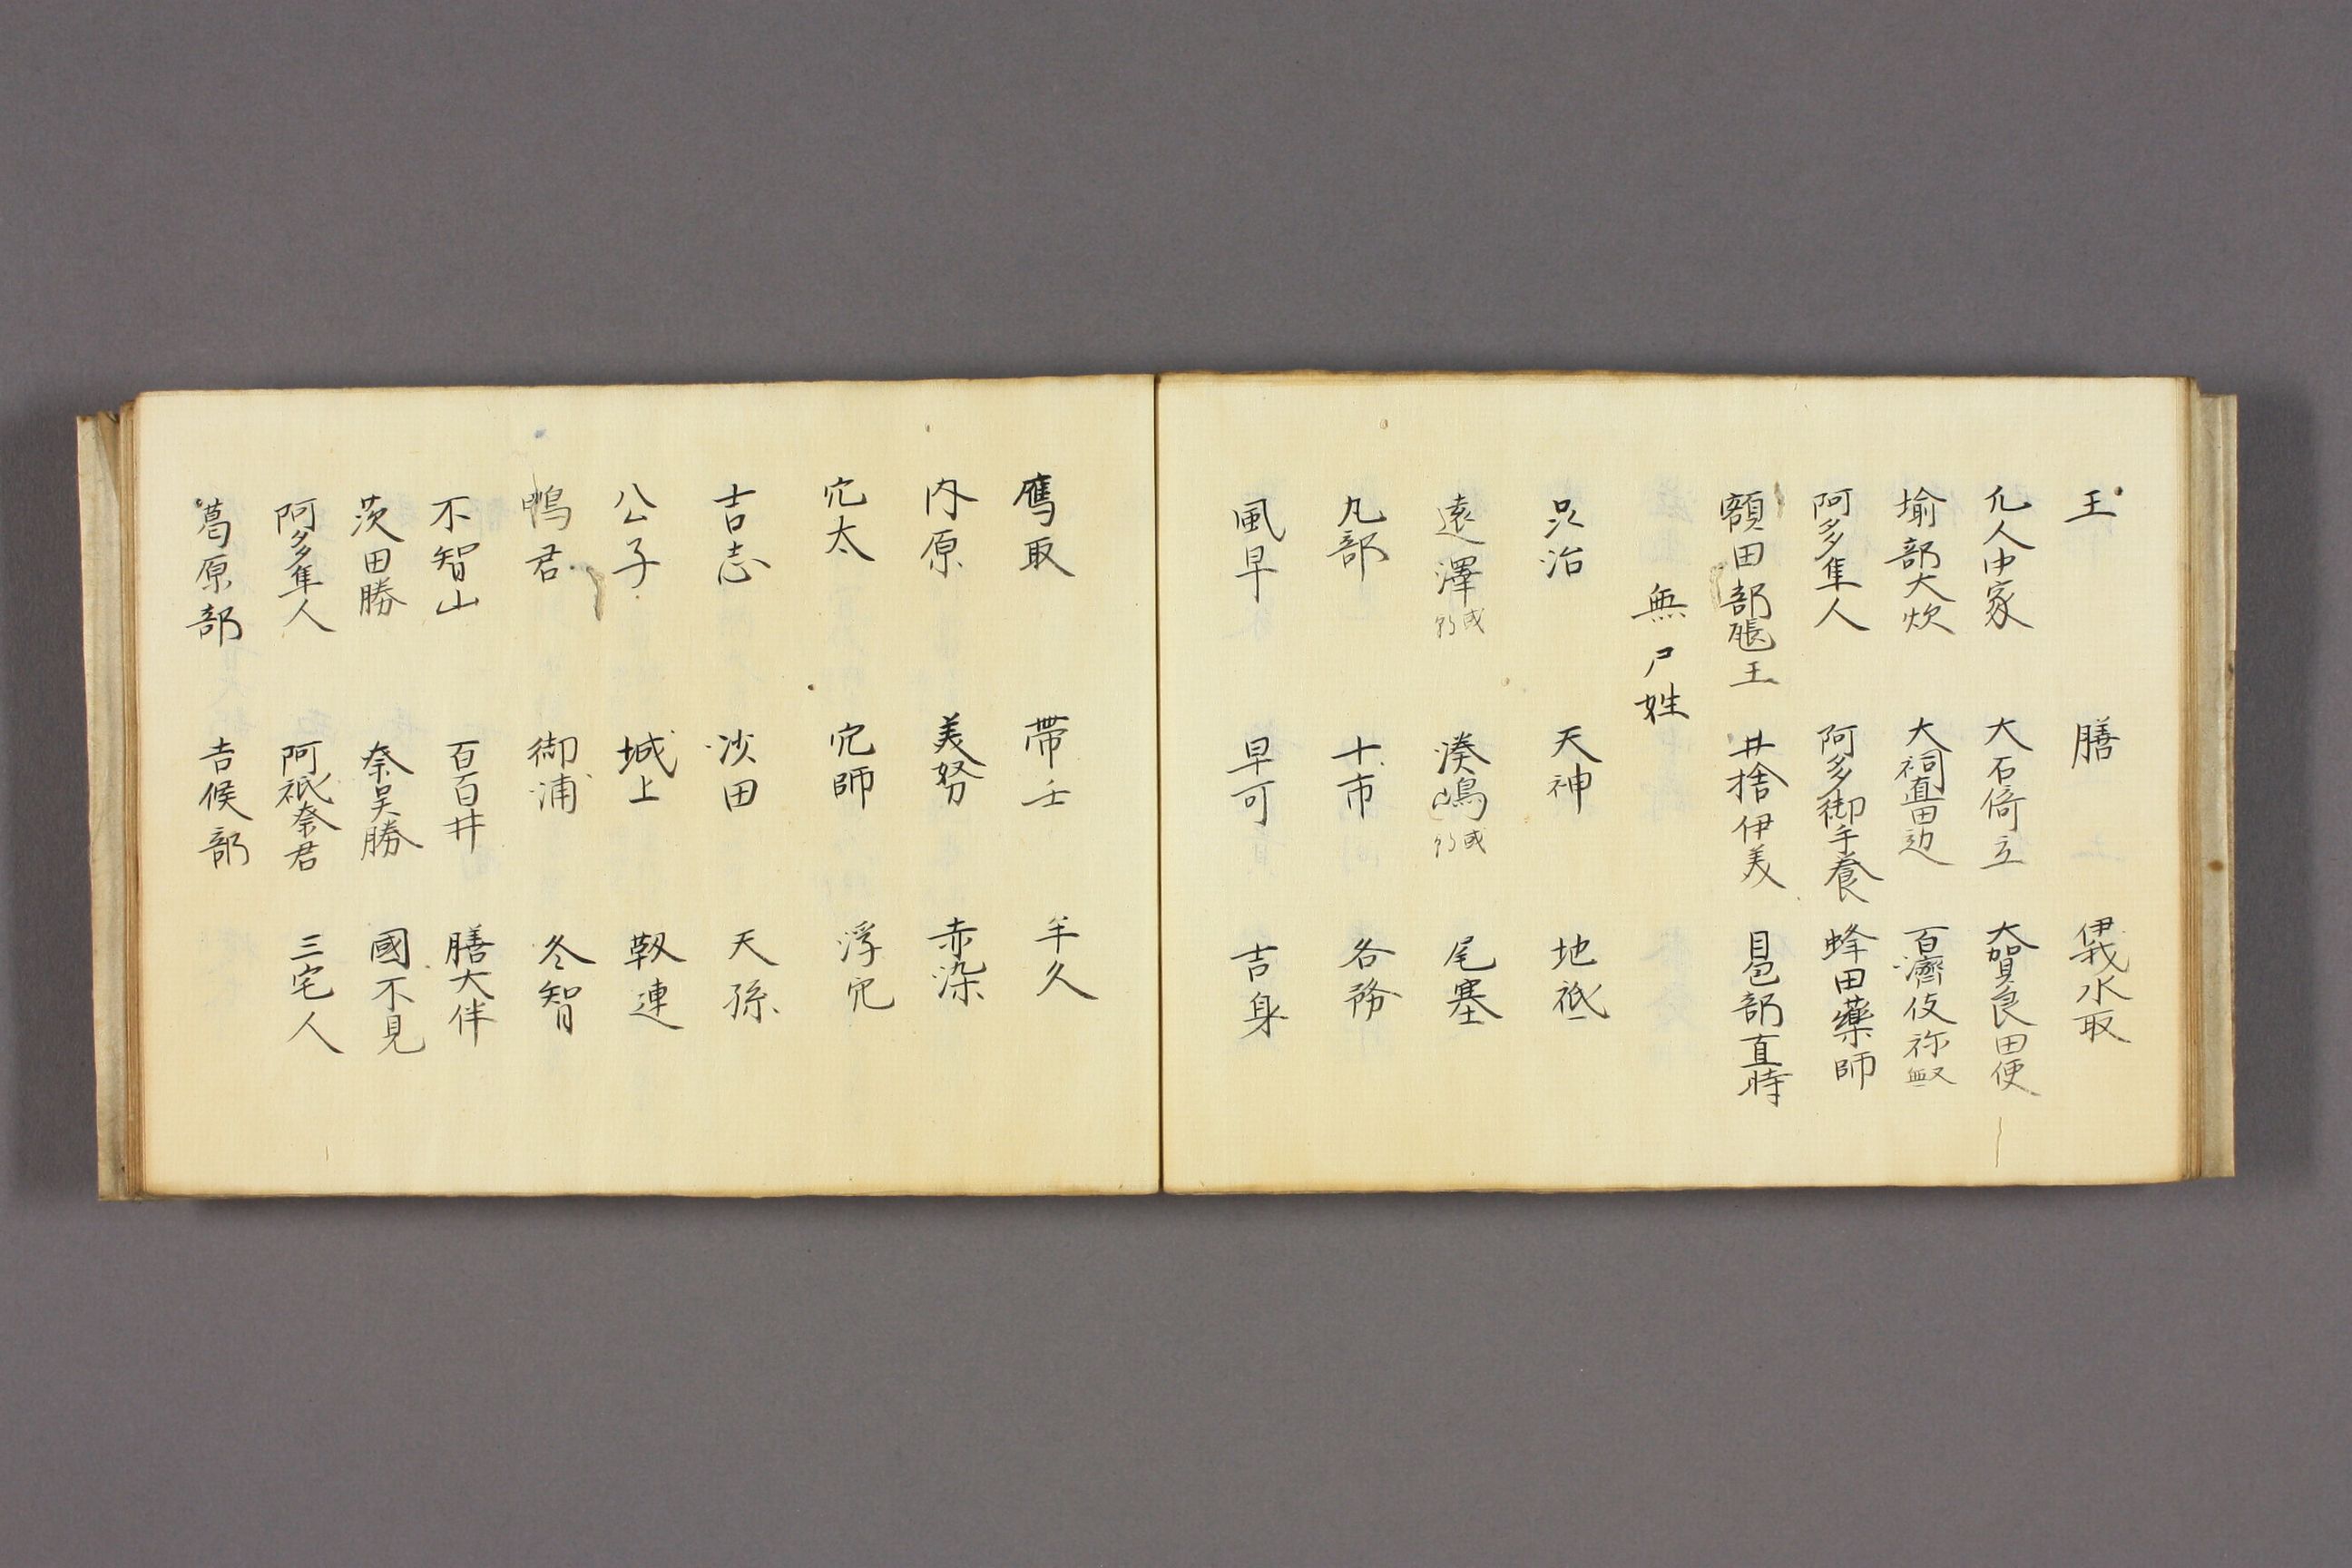 王　膳　伊我水取
凡人中家　大石倚立　大賀良田使
揄部大炊　大祠直田辺　百濟伎祢
阿多隼人　阿多御手養　蜂田藥師
額田部𤭖王　井捨伊美　邑部直時
無尸姓
只治　天神　地祇
遠澤　湊嶋　尾塞
凡部　十市　各務
風早　早可　吉身
鷹取　帶壬　牟久
内原　美努　赤染
穴太　穴師　浮穴
吉志　沙田　天孫
公子　城上　靱連
鴨君　御浦　冬智
不智山　百百井　膳大伴
茨田勝　奈呉勝　國不見
阿多隼人　阿祇奈君　三宅人
葛原部　吉候部